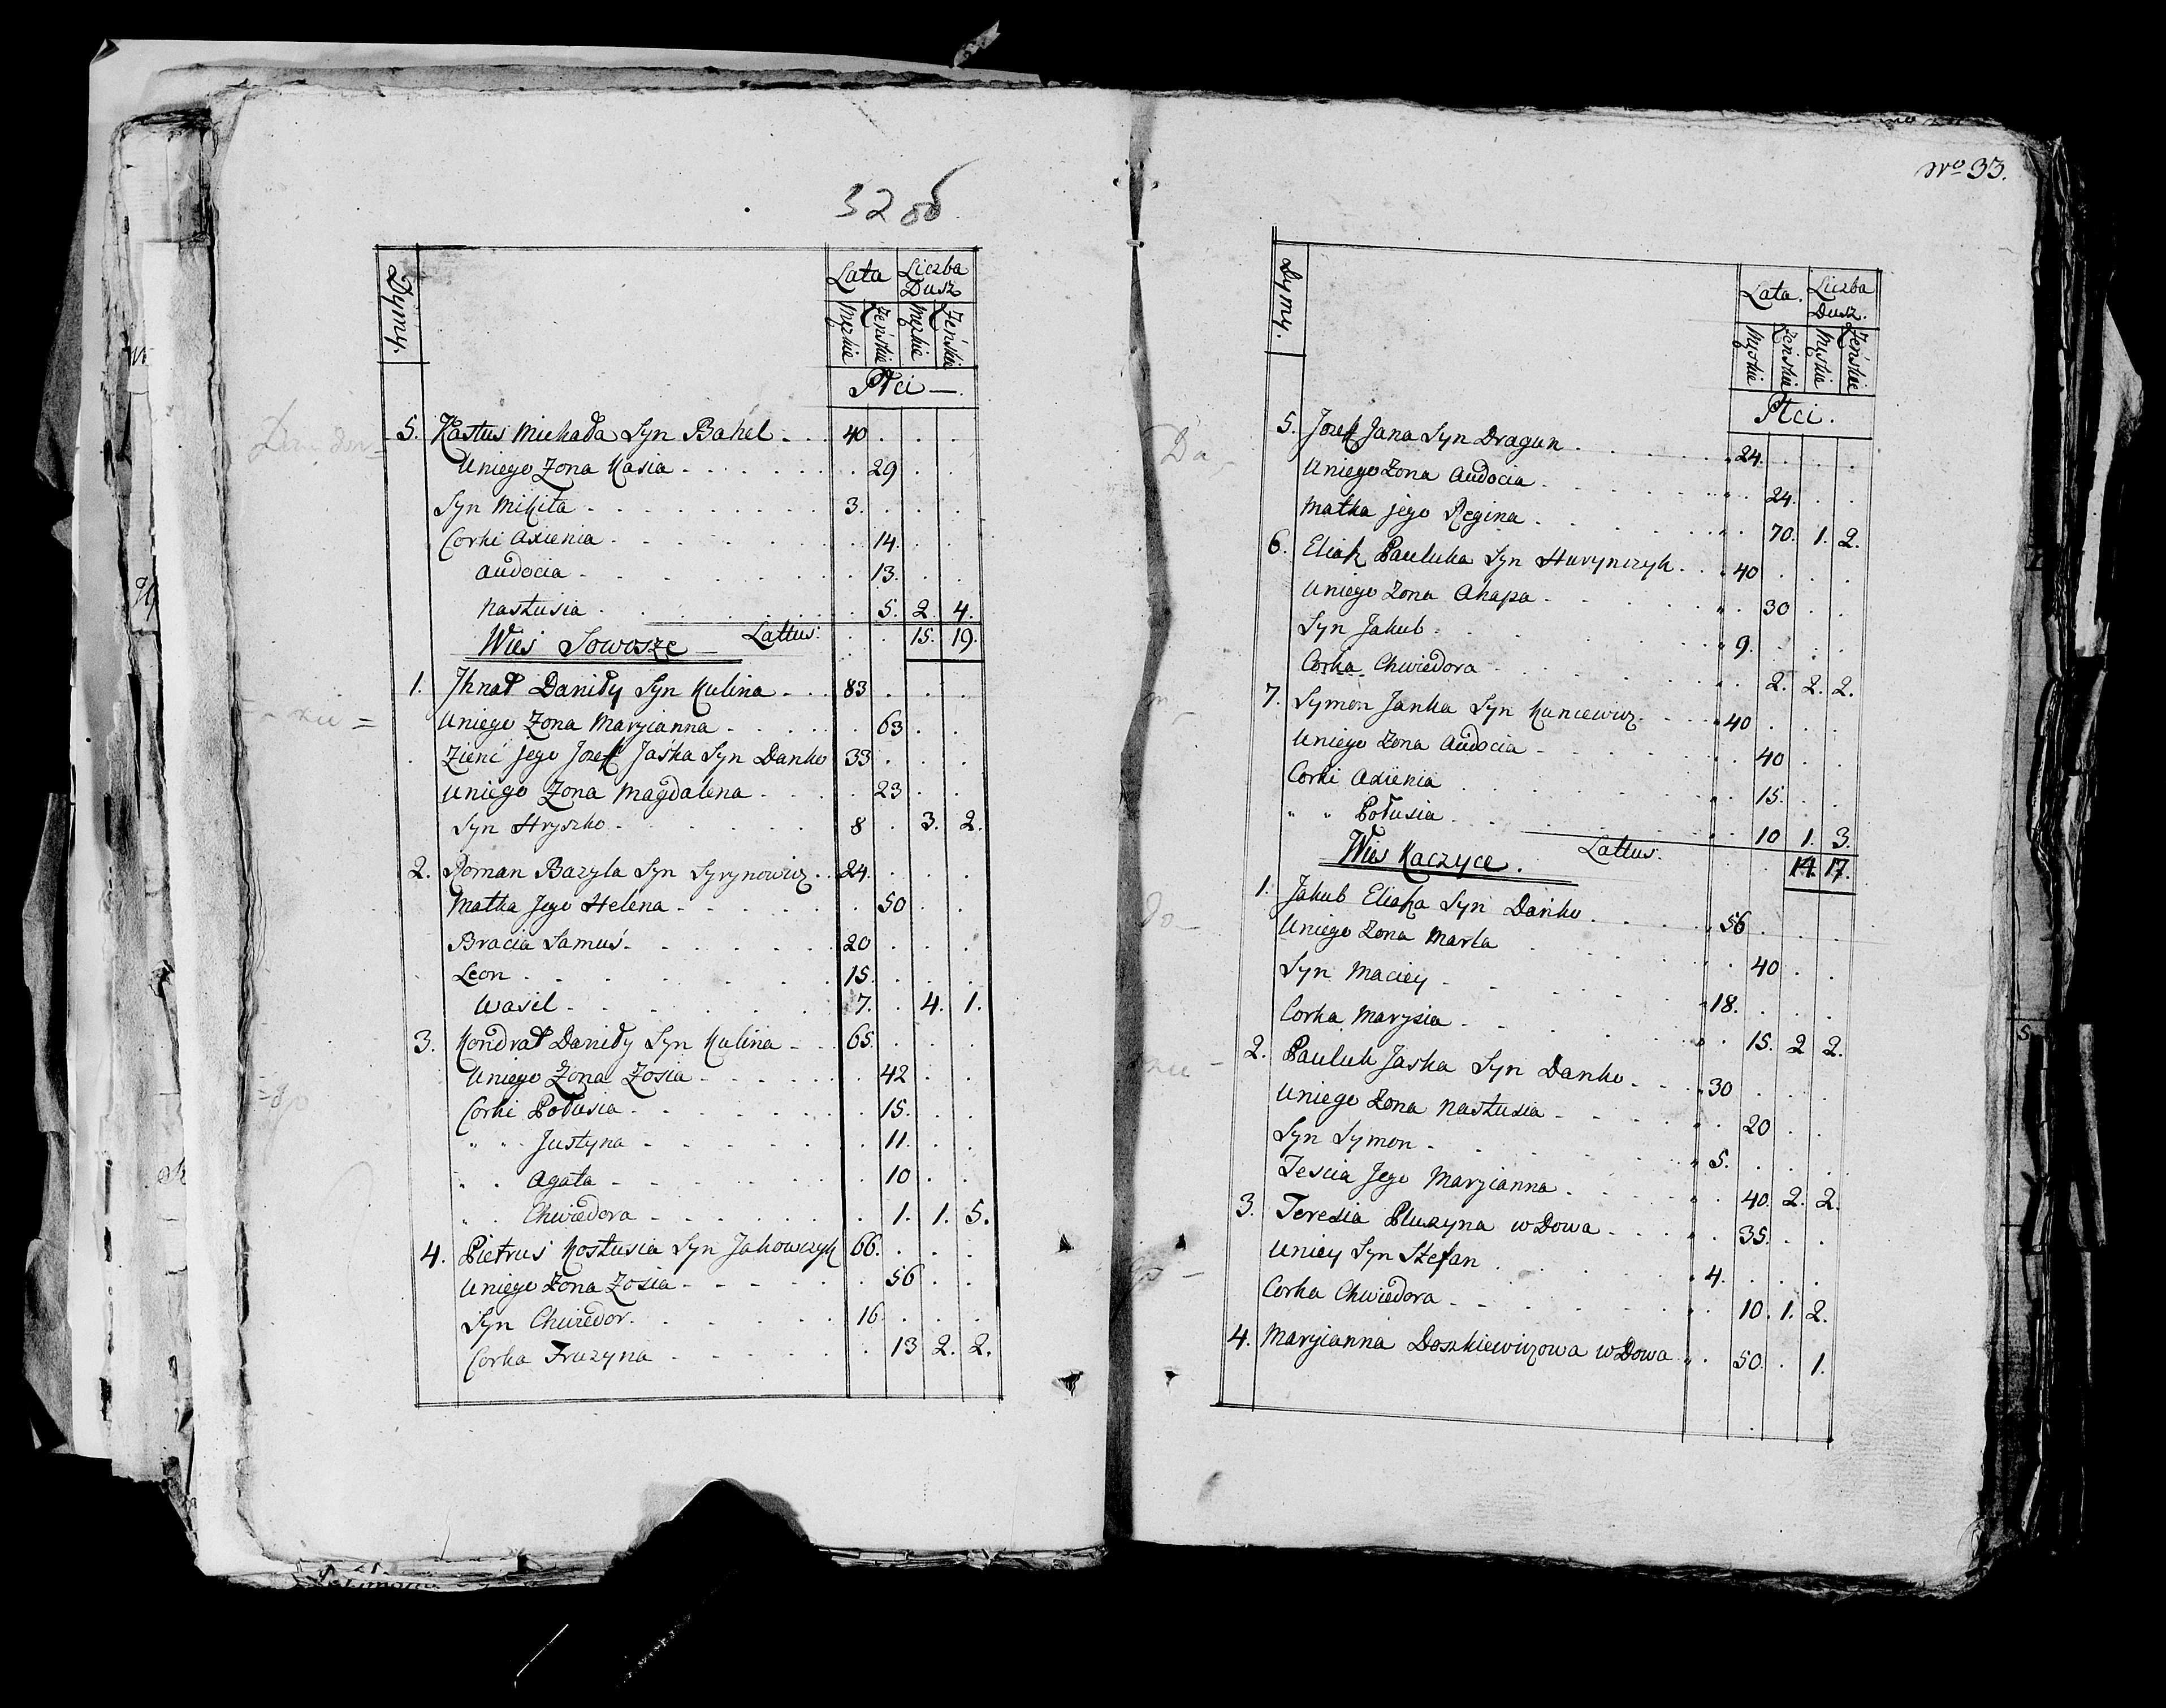 32 об
Dymy.
Lata
Liczba Dusz
Męzkie
Żeńskie
Męzkie
Żeńskie
Płci —
5. Kastuś Michała Syn Bahel 40
Uniego Żona Kasia 29
Syn Mikita 3.
Corki Axienia 14.
Audocia 13.
Nastusia 5. 2. 4.
Lattus: 15. 19.
Wieś Sowosze —
1. Jhnat Daniły Syn Kulina 83
Uniego Żona Maryianna 63
Zienć jego Jozeff Jaśka Syn Danko 33
Uniego Żona Magdalena 23
Syn Hryszko 8 3. 2.
2. Roman Bazyla Syn Syrynowicz 24.
Matka Jego Helena 50
Bracia Samuś 20
Leon 15.
Wasil 7. 4. 1.
3. Kondrat Daniły Syn Kulina 65.
Uniego Żona Zosia 42
Corki Połusia 15.
" " Justyna 11.
" " Agata 10
" " Chwiedora 1. 1. 5.
4. Pietruś Kostusia Syn Jakowczyk 66.
Uniego Żona Zosia 56
Syn Chwiedor 16
Corka Fruzyna 13 2. 2.
No 33.
Dymy.
Lata.
Liczba Dusz.
Męskie
Żeńskie
Męskie
Żeńskie
Płci.
5. Jozeff Jana Syn Dragun 24.
Uniego Żona Audocia 24.
Matka jego Regina 70. 1. 2.
6. Eliah Pauluka Syn Hurynczyk 40
Uniego Żona Ahapa 30
Syn Jakub 9.
Corka Chwiedora 2. 2. 2.
7. Symon Janka Syn Kuncewicz 40
Uniego Żona Audocia 40
Corki Axienia 15.
" " Połusia 10 1. 3.
Lattus: 14. 17.
Wieś Kaczyce.
1. Jakub Eliaha Syn Dańko 56
Uniego Żona Marta 40
Syn Maciey 18.
Corka Marysia 15. 2 2.
2. Pauluk Jaska Syn Danko 30
Uniego Żona Nastusia 20
Syn Symon 5.
Tescia Jego Maryianna 40. 2. 2.
3. Teresia Pluszyna wDowa 35.
Uniey Syn Stefan 4.
Corka Chwiedora 10. 1. 2.
4. Maryianna Doszkiewiczowa wDowa 50. 1.